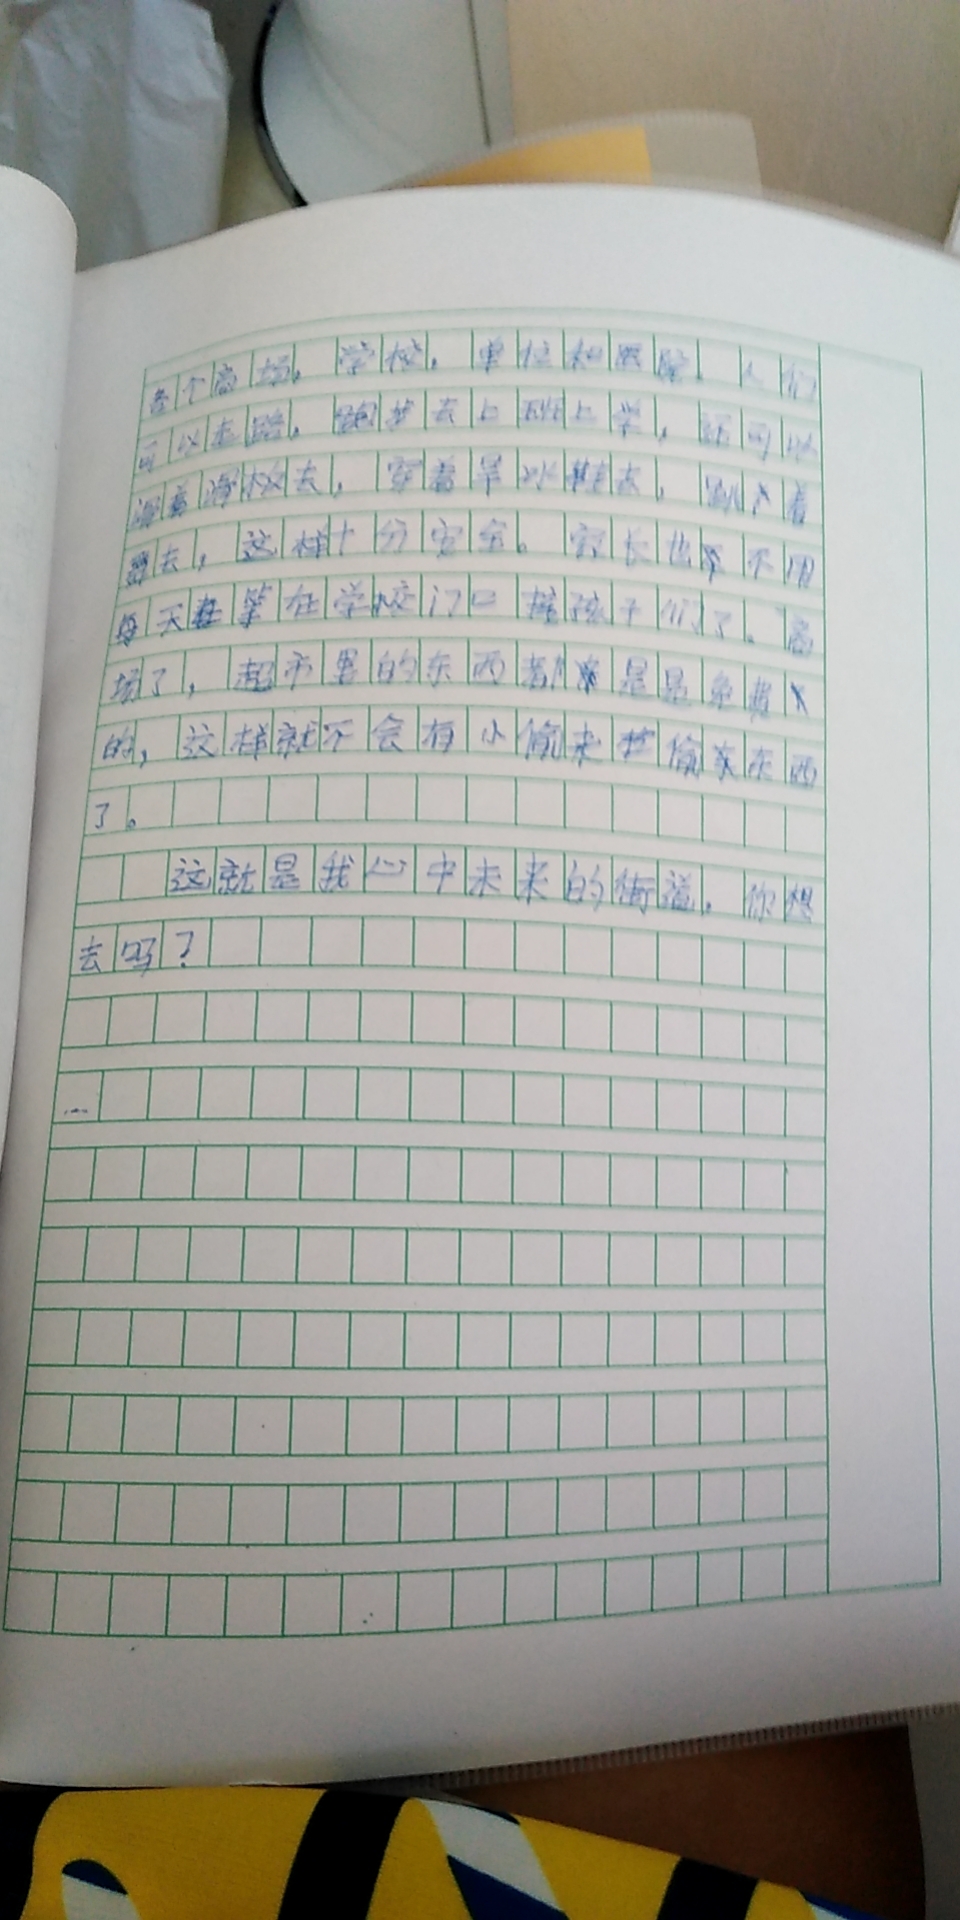 各个商场，学校，单位和医院。人们
可以走路，跑步去上班上学，还可以
滑着滑板去，穿着旱冰鞋去，跳着
去，这样十分安全。家长也不用
每天在学校门口接孩子们了。商
场了，超市里的东西都是免费
的，这样就不会有小偷来偷东西
了。
这就是我心中未来的街道，你想
去吗？